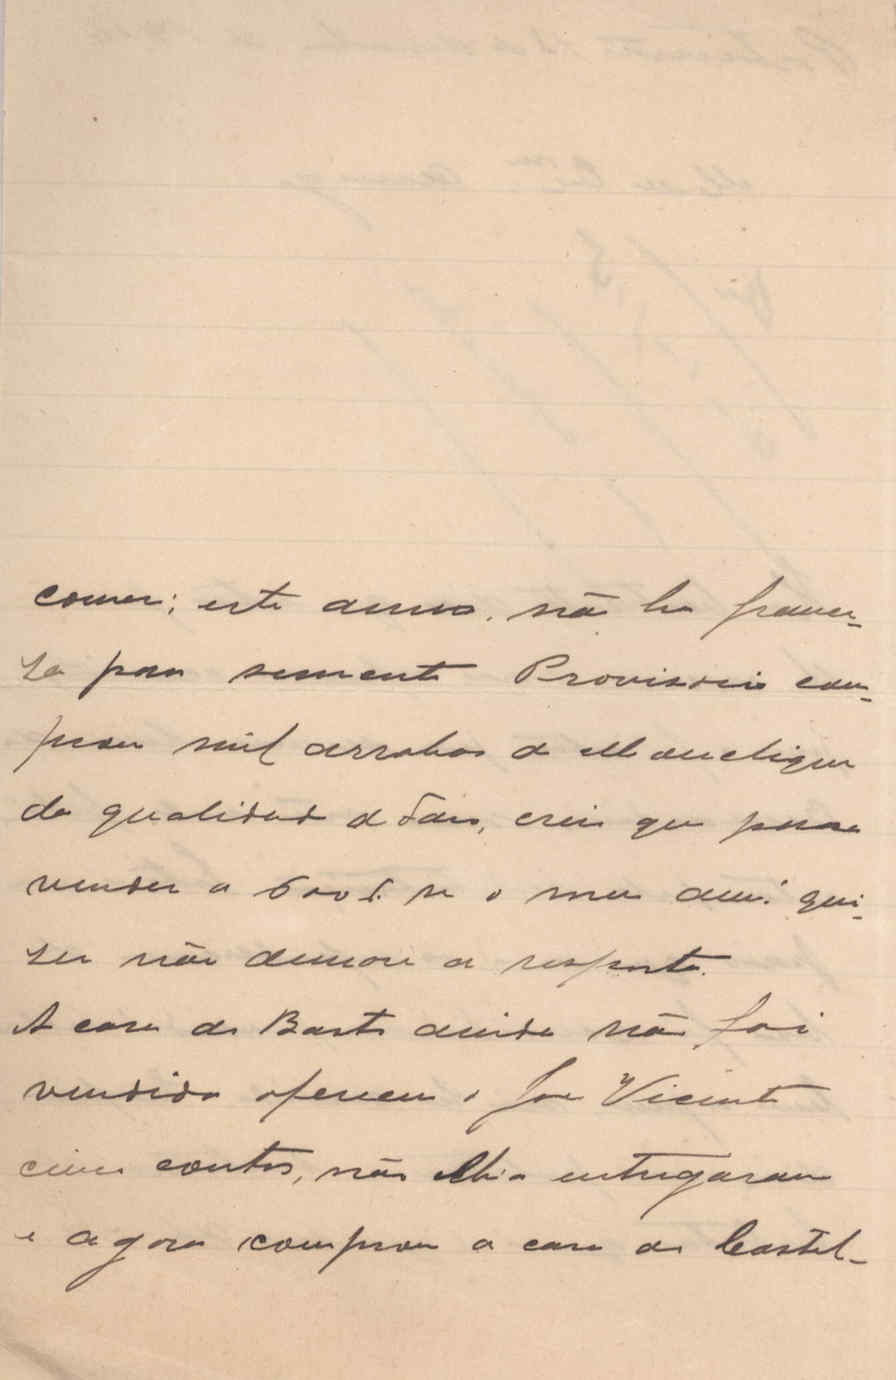 comer; este anno, não ha france-
za para semente Provisorio com-
prou mil arrobas de Monchique
da qualidade d
vender a 600 r. se o meu am.º qui-
zer não demore a resposta.
A casa do Basto ainda não foi
vendida offereceu o José Vicente
cinco contos, não lh'a entregaram
e agora comprou a casa do Castel-